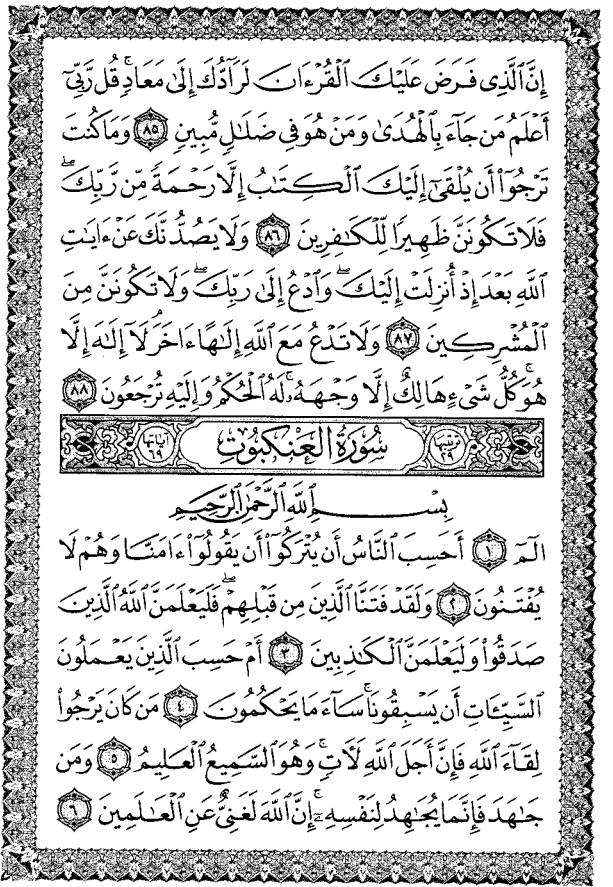 إِنَّ ٱلَّذِى فَرَضَ عَلَيْكَ ٱلْقُرْءَانَ لَرَآدُّكَ إِلَىٰ مَعَادٍۚ قُل رَّبِّىٓ
أَعْلَمُ مَن جَآءَ بِٱلْهُدَىٰ وَمَنْ هُوَ فِى ضَلَٰلٍ مُّبِينٍ ٨٥ وَمَا كُنتَ
تَرْجُوٓا۟ أَن يُلْقَىٰٓ إِلَيْكَ ٱلْكِتَٰبُ إِلَّا رَحْمَةً مِّن رَّبِّكَۖ
فَلَا تَكُونَنَّ ظَهِيرًا لِّلْكَٰفِرِينَ ٨٦ وَلَا يَصُدُّنَّكَ عَنْ ءَايَٰتِ
ٱللَّهِ بَعْدَ إِذْ أُنزِلَتْ إِلَيْكَۖ وَٱدْعُ إِلَىٰ رَبِّكَۖ وَلَا تَكُونَنَّ مِنَ
ٱلْمُشْرِكِينَ ٨٧ وَلَا تَدْعُ مَعَ ٱللَّهِ إِلَٰهًا ءَاخَرَۘ لَآ إِلَٰهَ إِلَّا
هُوَۚ كُلُّ شَىْءٍ هَالِكٌ إِلَّا وَجْهَهُۥۚ لَهُ ٱلْحُكْمُ وَإِلَيْهِ تُرْجَعُونَ ٨٨
ترتيبها ٢٩ سُورَةُ العَنكبُوتِ آياتها ٦٩
بِسْمِ ٱللَّهِ ٱلرَّحْمَٰنِ ٱلرَّحِيمِ
الٓمٓ ١ أَحَسِبَ ٱلنَّاسُ أَن يُتْرَكُوٓا۟ أَن يَقُولُوٓا۟ ءَامَنَّا وَهُمْ لَا
يُفْتَنُونَ ٢ وَلَقَدْ فَتَنَّا ٱلَّذِينَ مِن قَبْلِهِمْۖ فَلَيَعْلَمَنَّ ٱللَّهُ ٱلَّذِينَ
صَدَقُوا۟ وَلَيَعْلَمَنَّ ٱلْكَٰذِبِينَ ٣ أَمْ حَسِبَ ٱلَّذِينَ يَعْمَلُونَ
ٱلسَّيِّـَٔاتِ أَن يَسْبِقُونَاۚ سَآءَ مَا يَحْكُمُونَ ٤ مَن كَانَ يَرْجُوا۟
لِقَآءَ ٱللَّهِ فَإِنَّ أَجَلَ ٱللَّهِ لَـَٔاتٍۚ وَهُوَ ٱلسَّمِيعُ ٱلْعَلِيمُ ٥ وَمَن
جَٰهَدَ فَإِنَّمَا يُجَٰهِدُ لِنَفْسِهِۦٓۚ إِنَّ ٱللَّهَ لَغَنِىٌّ عَنِ ٱلْعَٰلَمِينَ ٦